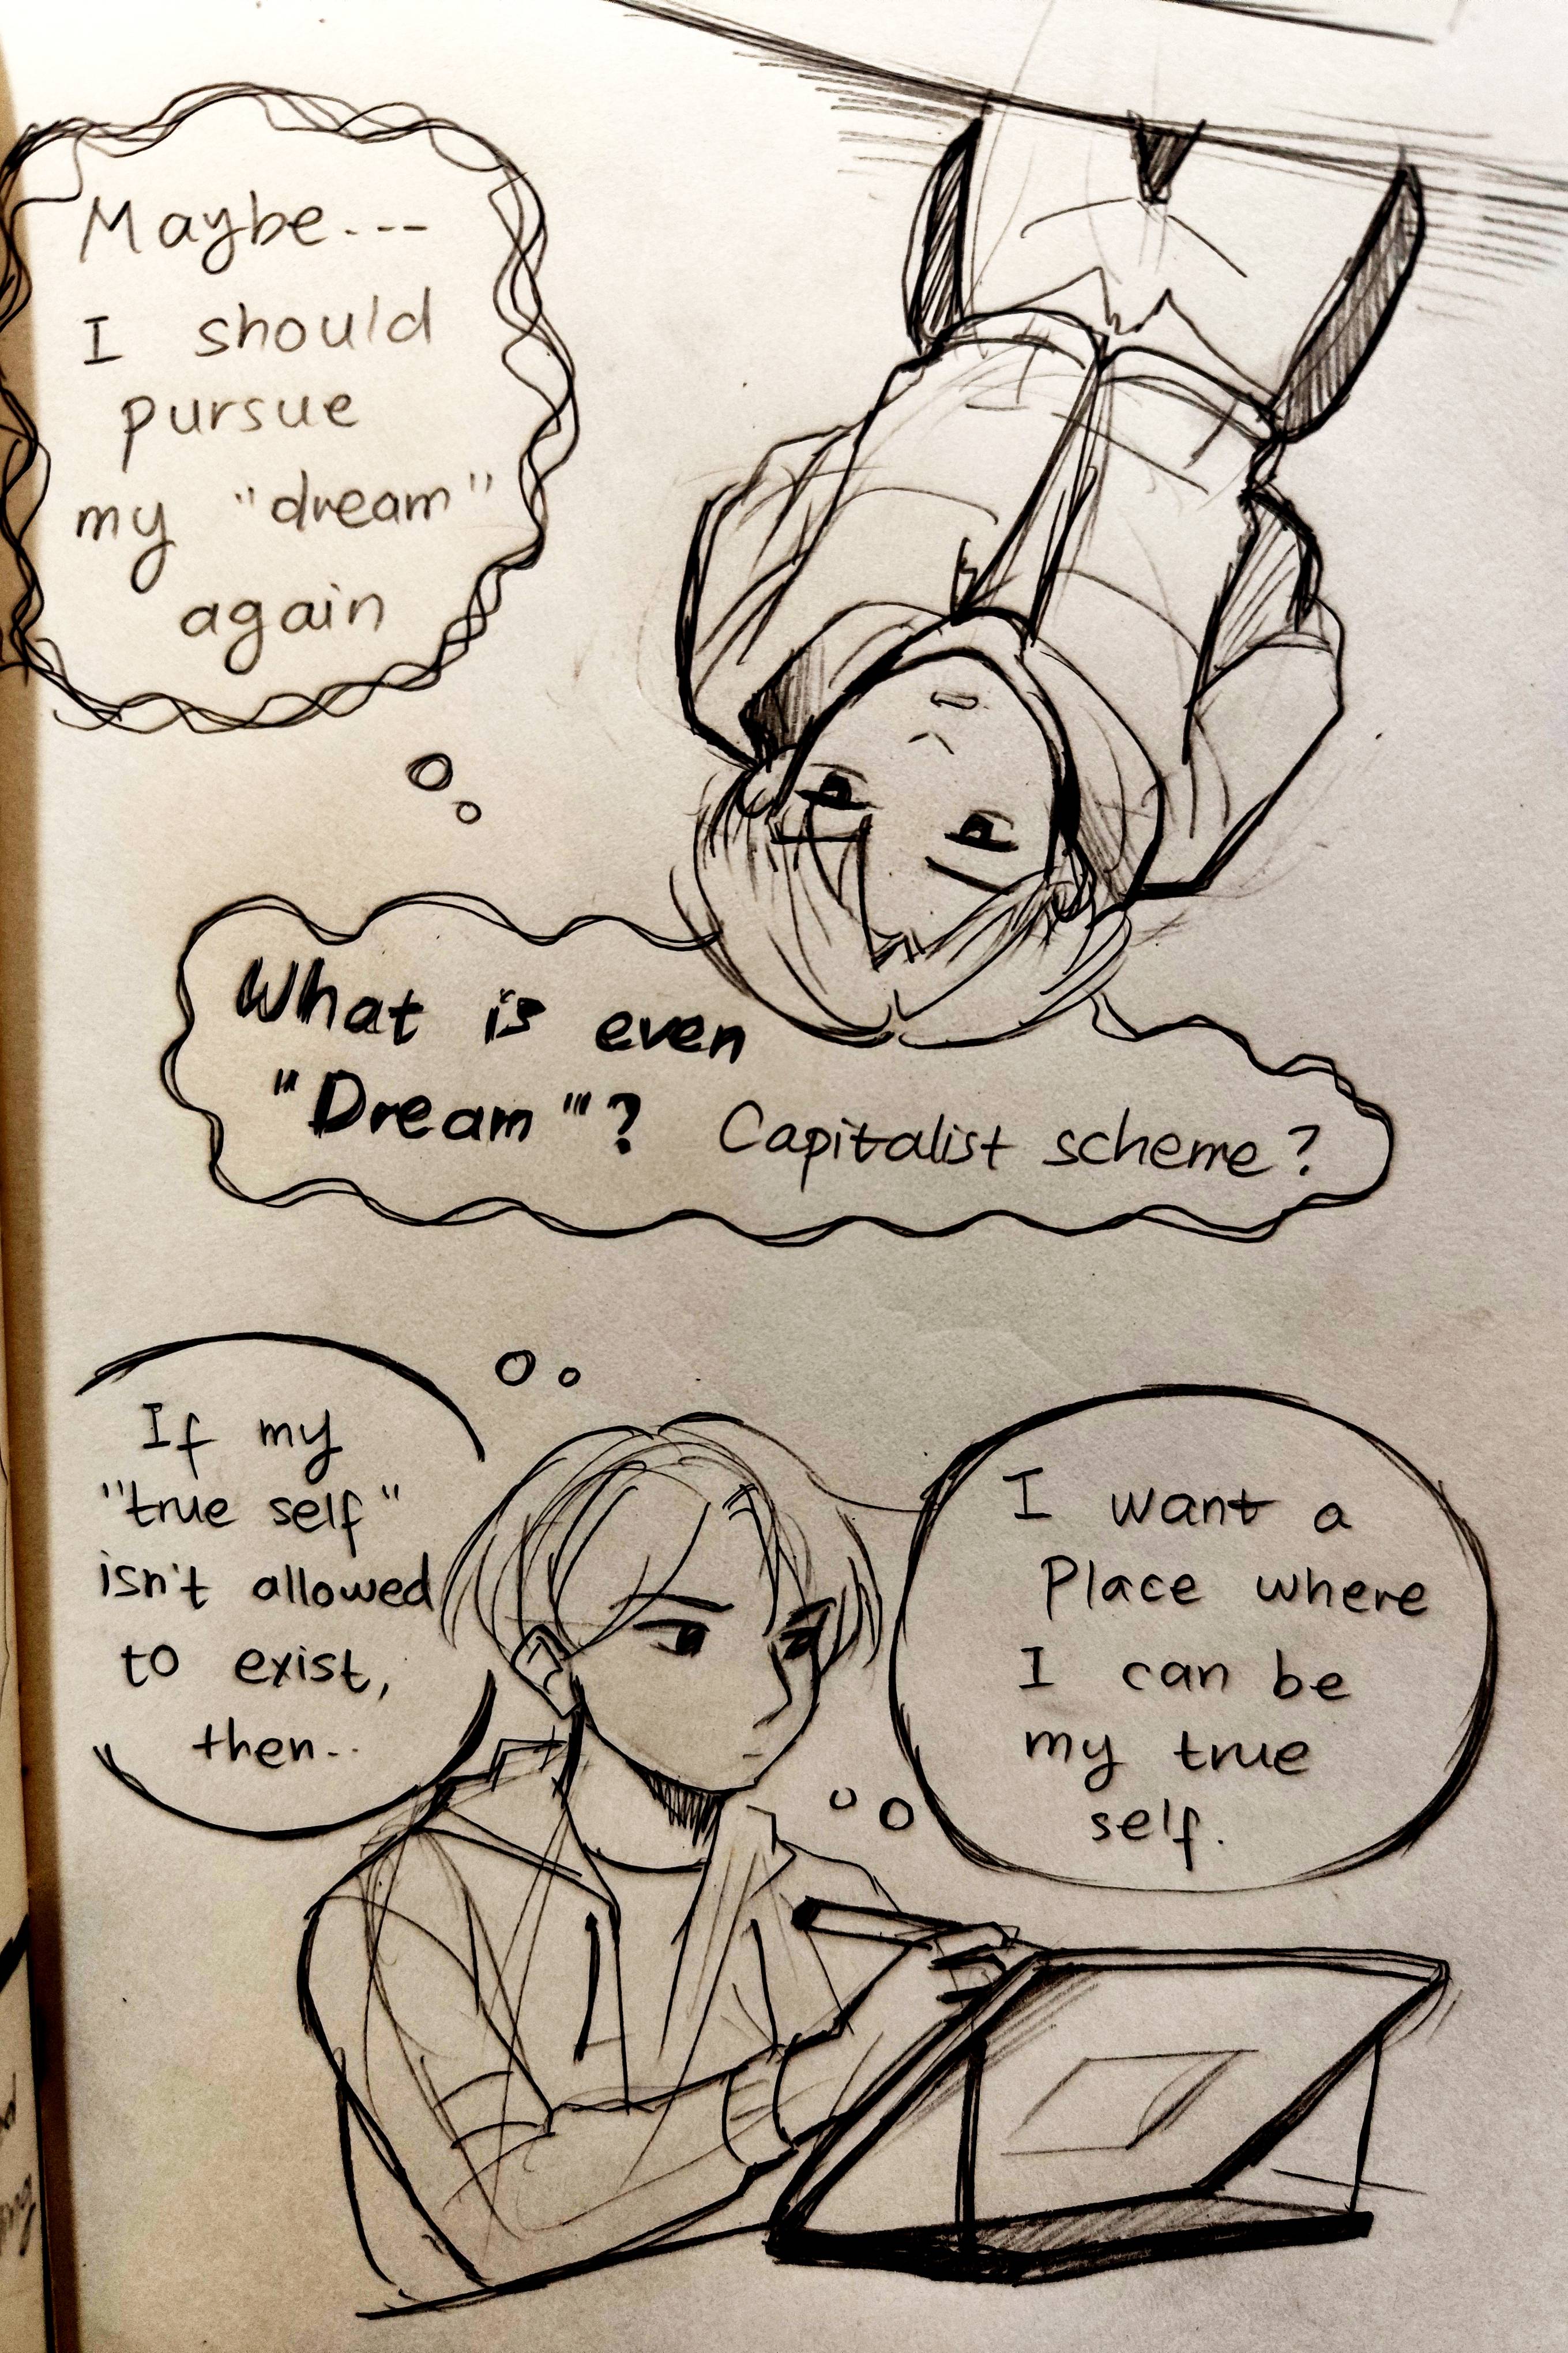 Maybe---
I should
pursue
my "dream"
again
What is even
"Dream"? Capitalist scheme?
If my
"true self"
isn't allowed
to exist,
then..
I want a
Place where
I can be
my true
self.